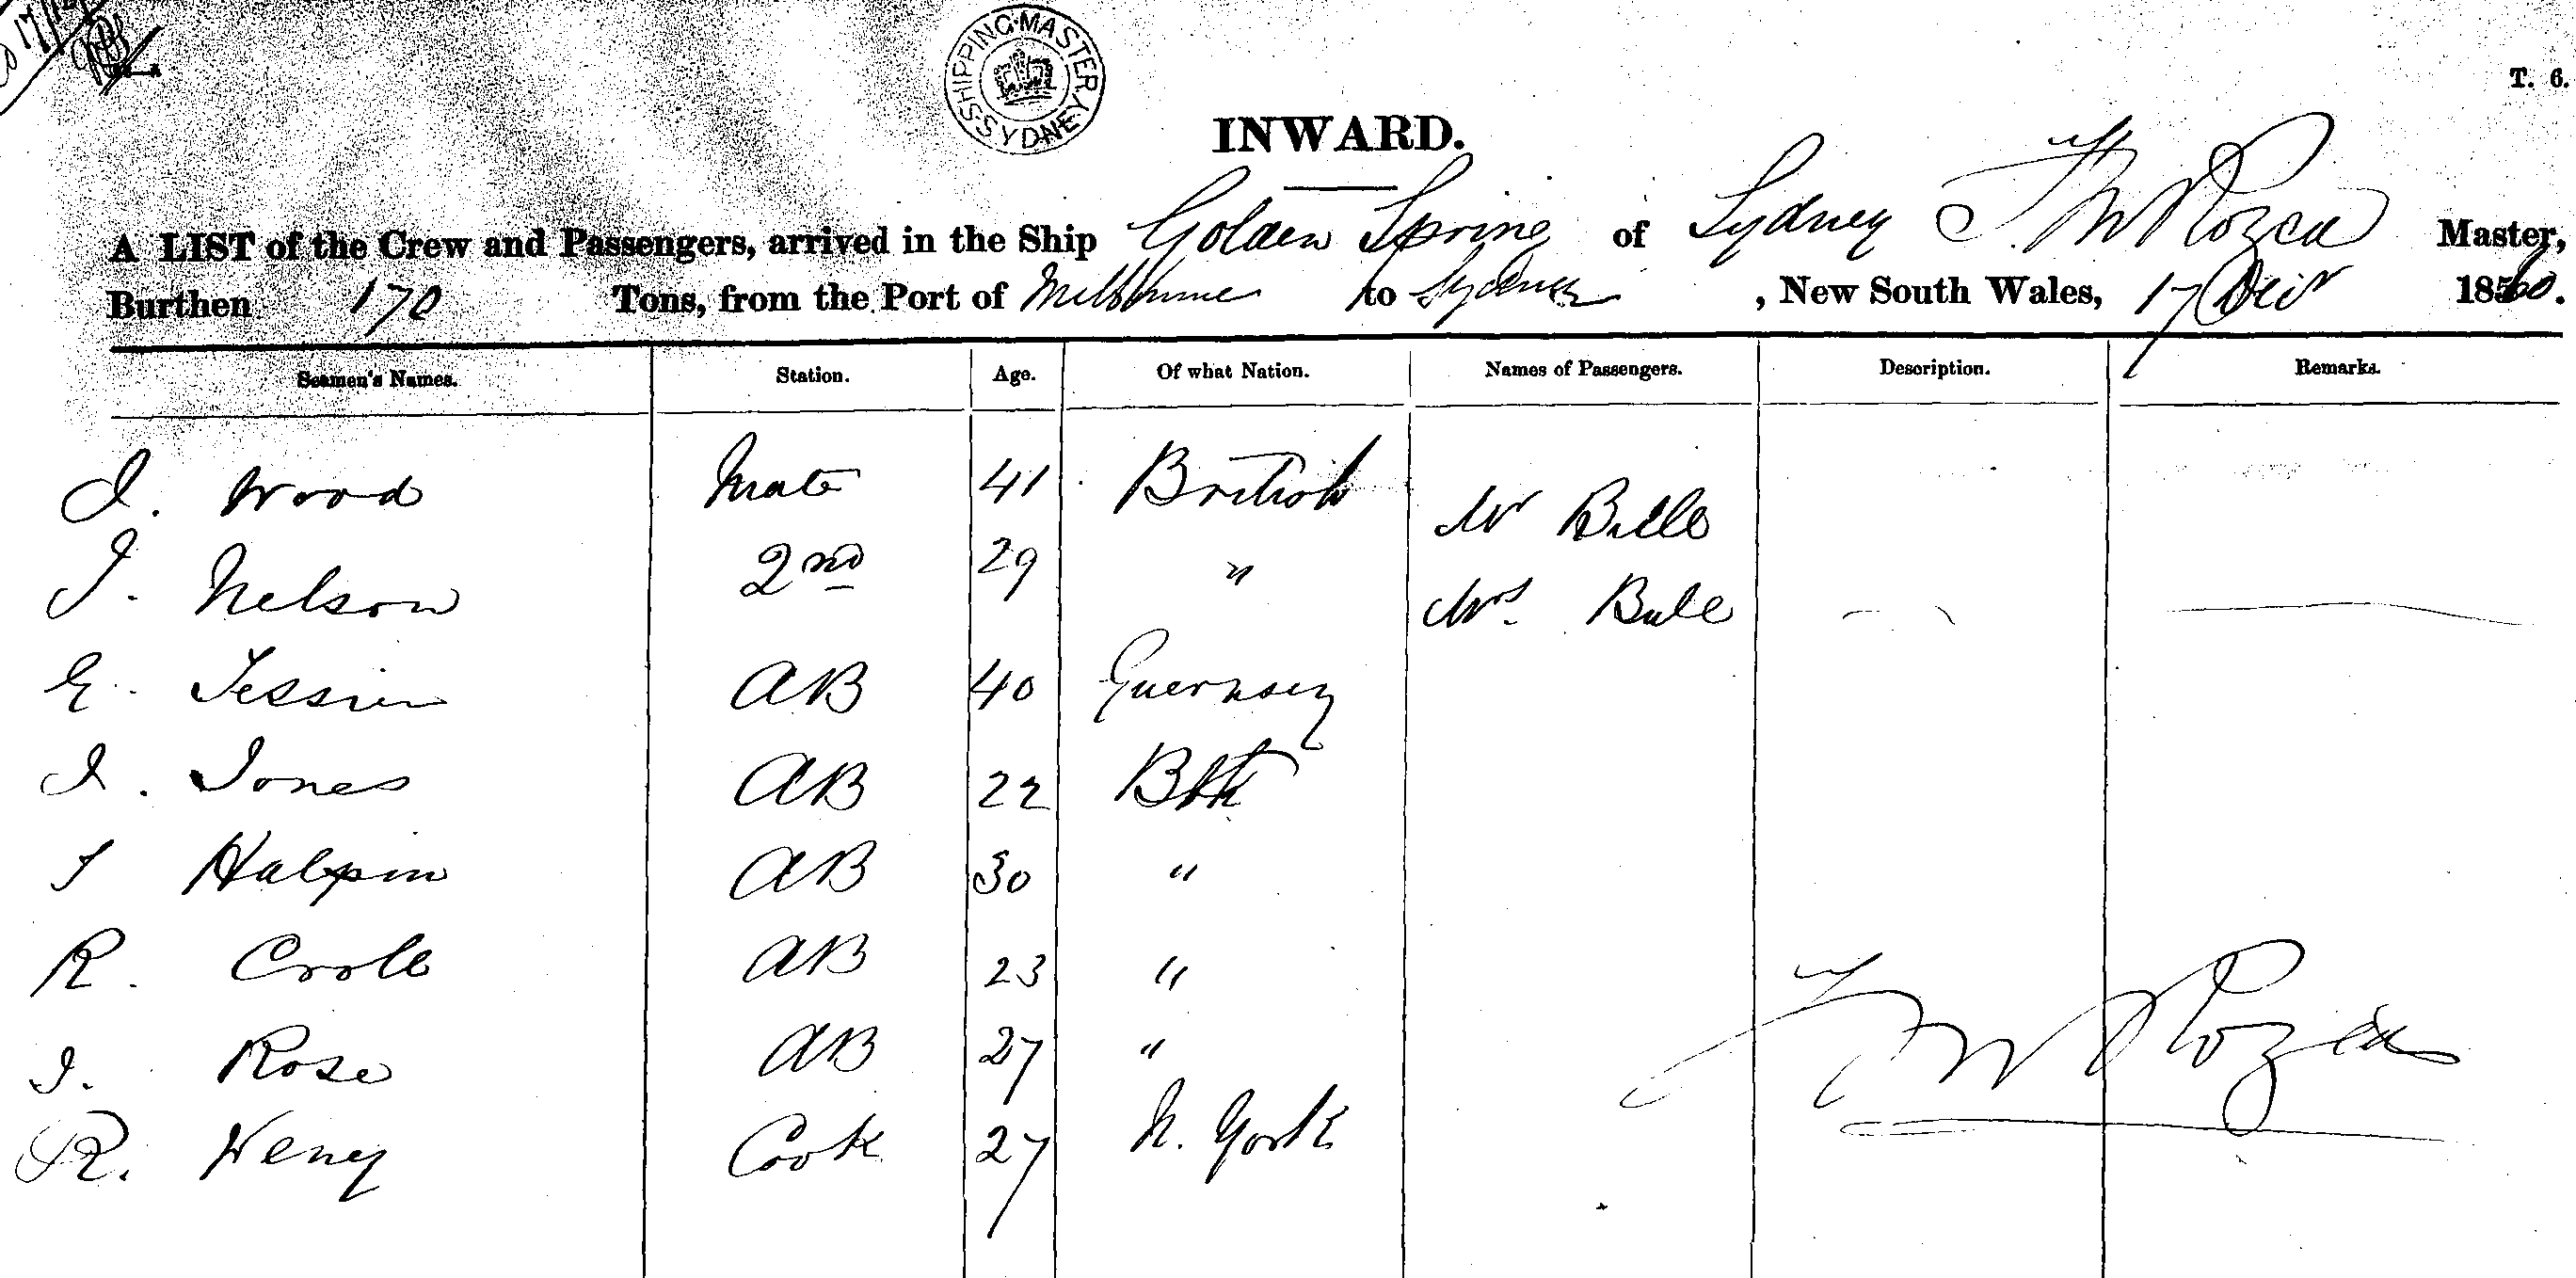 SHIPPING MASTER SYDNEY
T. 6.
INWARD.
A LIST of the Crew and Passengers, arrived in the Ship Golden Spring of Sydney Master,
Burthen 170 Tons, from the Port of Melbourne to Sydney, New South Wales, 17 Decr 1860.
Seamen's Names. Station. Age. Of what Nation. Names of Passengers. Description. Remarks.
J. Wood Mate 41 British Mr Bull
J. Nelson 2nd 29 " Mrs. Bull
E. Tessier AB 40 Guernsey
J. Jones AB 22
J Halpin AB 30 "
R. Croll AB 23 "
J. Rose AB 27 "
R. Cook 27 N. York